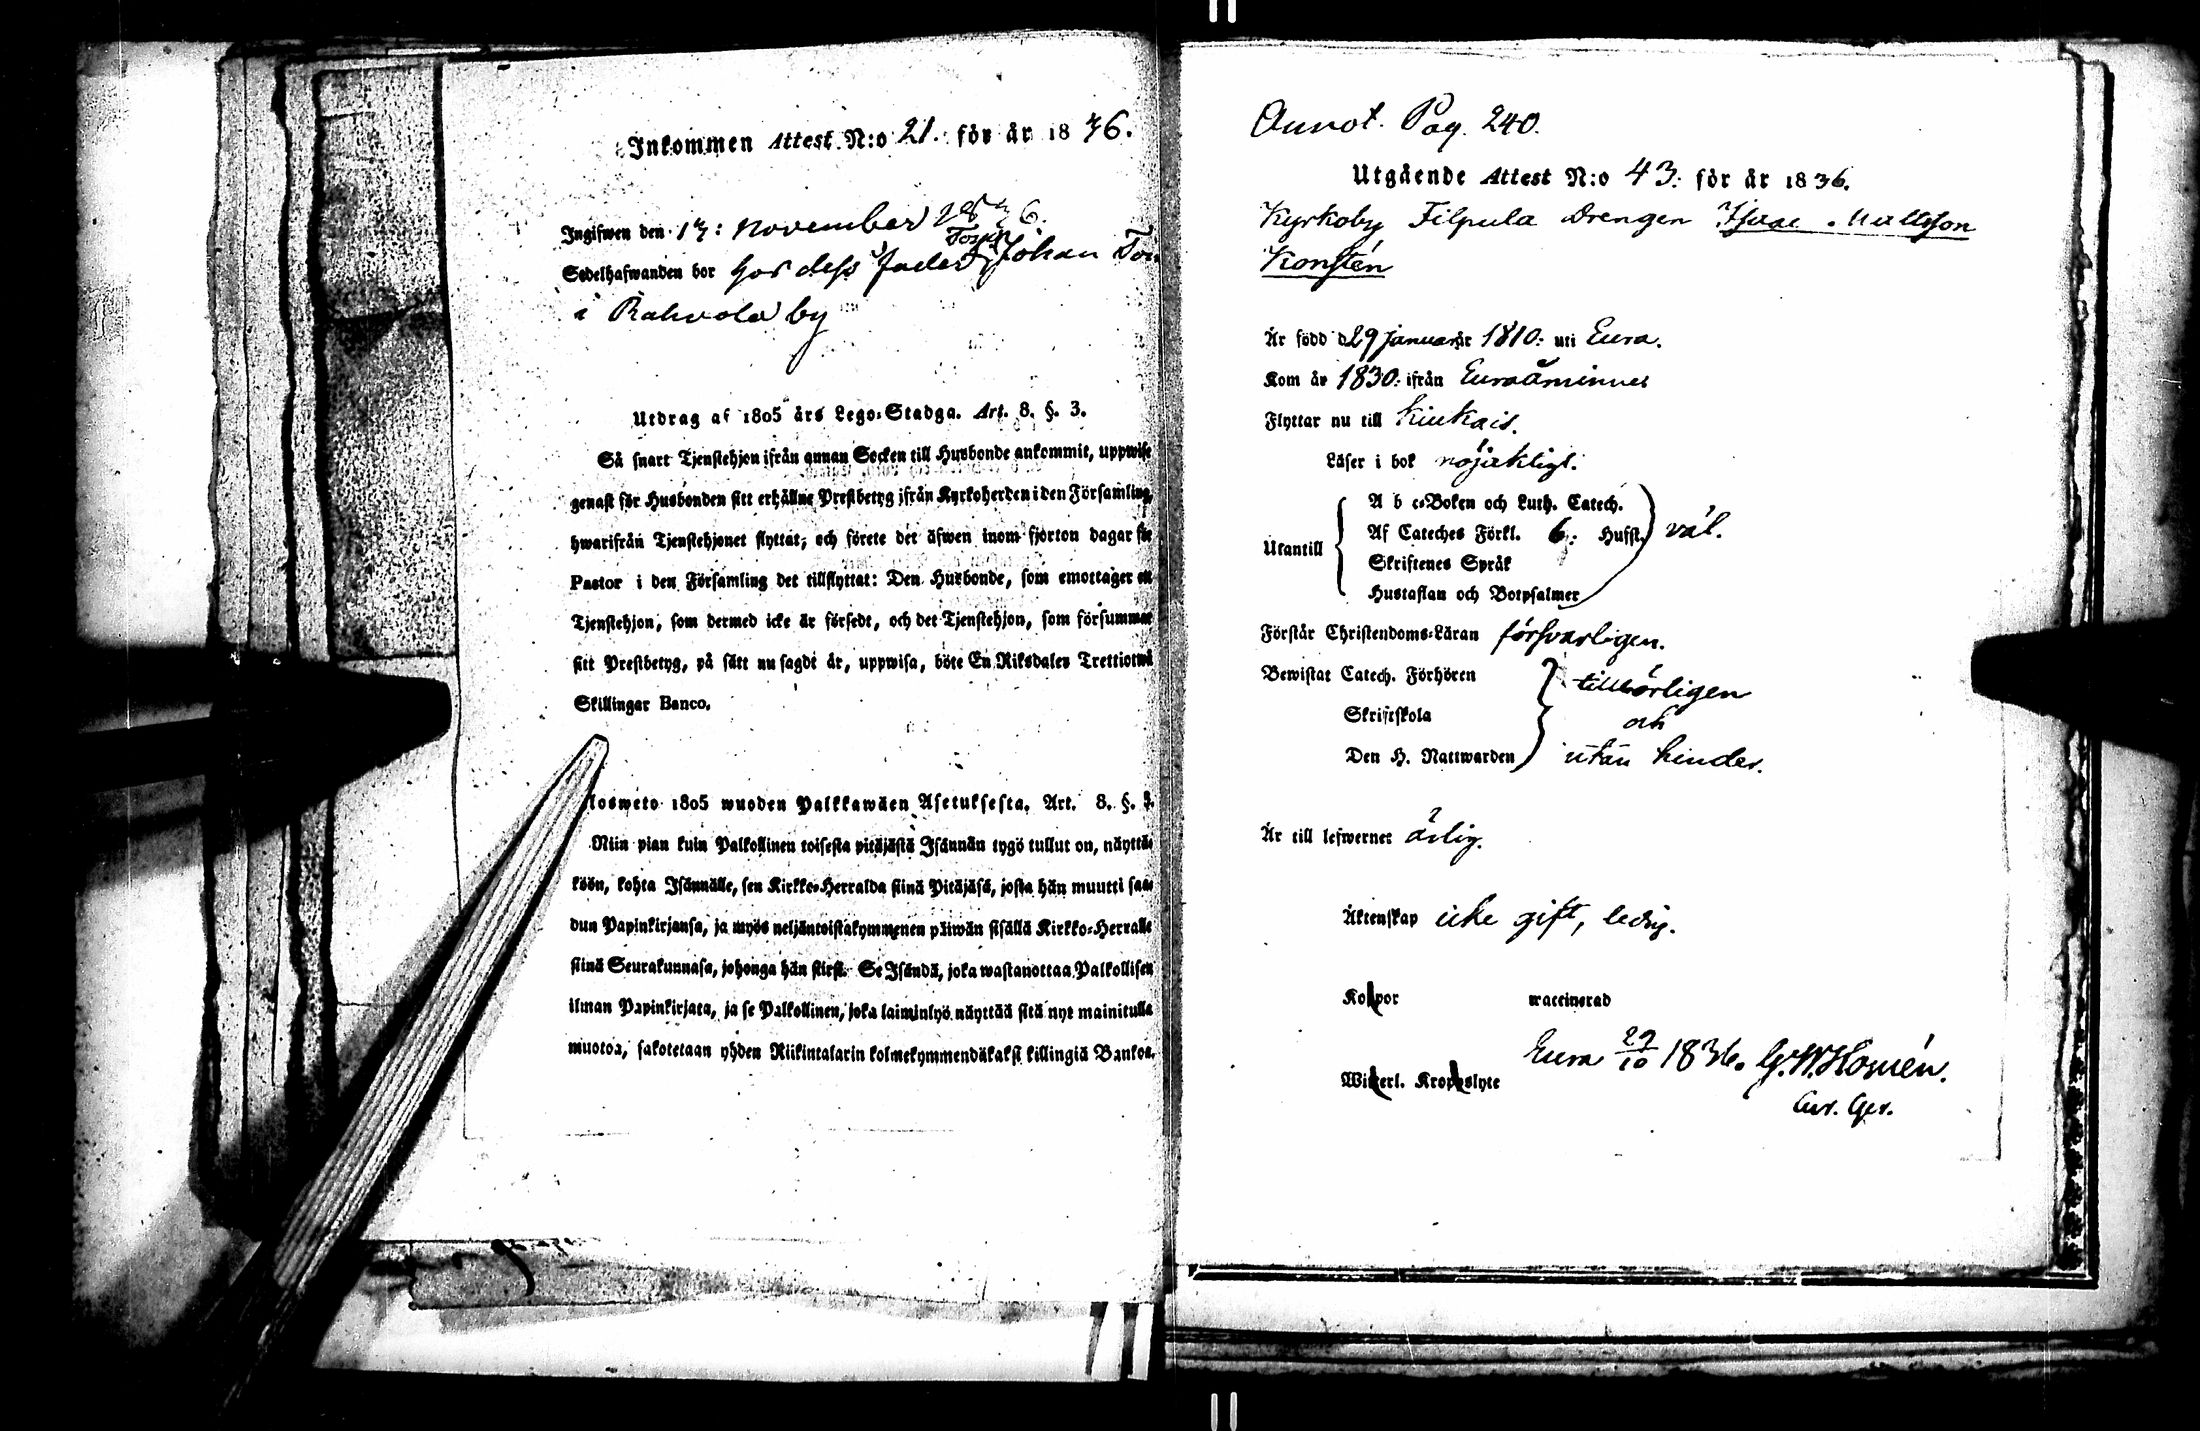 Inkommen Attest N:o 21. för år 1836.
Ingifwen den 13: November 1836.
Torp.
Sedelhafwanden bor hos dess fader Johan
i Rahvola by
Utdrag af 1805 års Lego-Stadga. Art. 8. §. 3.
Så snart Tjenstehjon ifrån annan Socken till Husbonde ankommit, uppwise
genast för Husbonden sitt erhållne Prestbetyg ifrån Kyrkoherden i den Församling,
hwarifrån Tjenstehjonet flyttat, och förete det äfwen inom fjorton dagar för
Pastor i den Församling det tillflyttat: Den Husbonde, som emottager ett
Tjenstehjon, som dermed icke är försedt, och det Tjenstehjon, som försummar
sitt Prestbetyg, på sätt nu sagdt är, uppwisa, böte En Riksdaler Trettiotwå
Skillingar Banco.
Ulosweto 1805 wuoden Palkkawäen Asetuksesta. Art. 8. §. 3.
Niin pian kuin Palkollinen toisesta pitäjästä Isännän tygö tullut on, näyttä-
köön, kohta Isännälle, sen Kirkko-Herralda siinä Pitäjäsä, josta hän muutti saa-
dun Papinkirjansa, ja myös neljäntoistakymmenen päiwän sisällä Kirkko-Herralle
siinä Seurakunnasa, johonga hän siirsi. Se Isändä, joka wastanottaa Palkollisen
ilman Papinkirjata, ja se Palkollinen, joka laiminlyö näyttää sitä nyt mainitulla
muotoa, sakotetaan yhden Riikintalarin kolmekymmendäkaksi killingiä Bankoa.
Annot. Pag. 240.
Utgående Attest N:o 43: för år 1836.
Kyrkoby Filpula Drengen Isaac Mattsson
Konstén
Är född d 29 Januari år 1810: uti Eura.
Kom år 1830: ifrån Euraåminne
Flyttar nu till Kiukais.
Läser i bok nöjaktligt.
Utantill
A b c-Boken och Luth. Catech.
Af Cateches Förkl. 6: Hufst. väl.
Skriftenes Språk
Hustaflan och Botpsalmer
Förstår Christendoms-Läran försvarligen.
Bewistat Catech. Förhören tillbörligen
Skriftskola och
Den H. Nattwarden utan hinder.
Är till lefwernet ärlig.
Äktenskap icke gift, ledig.
Koppor waccinerad
Eura 29/10 1836. G.W. Homén.
Witterl. Kroppslyte
Cur. Ger.